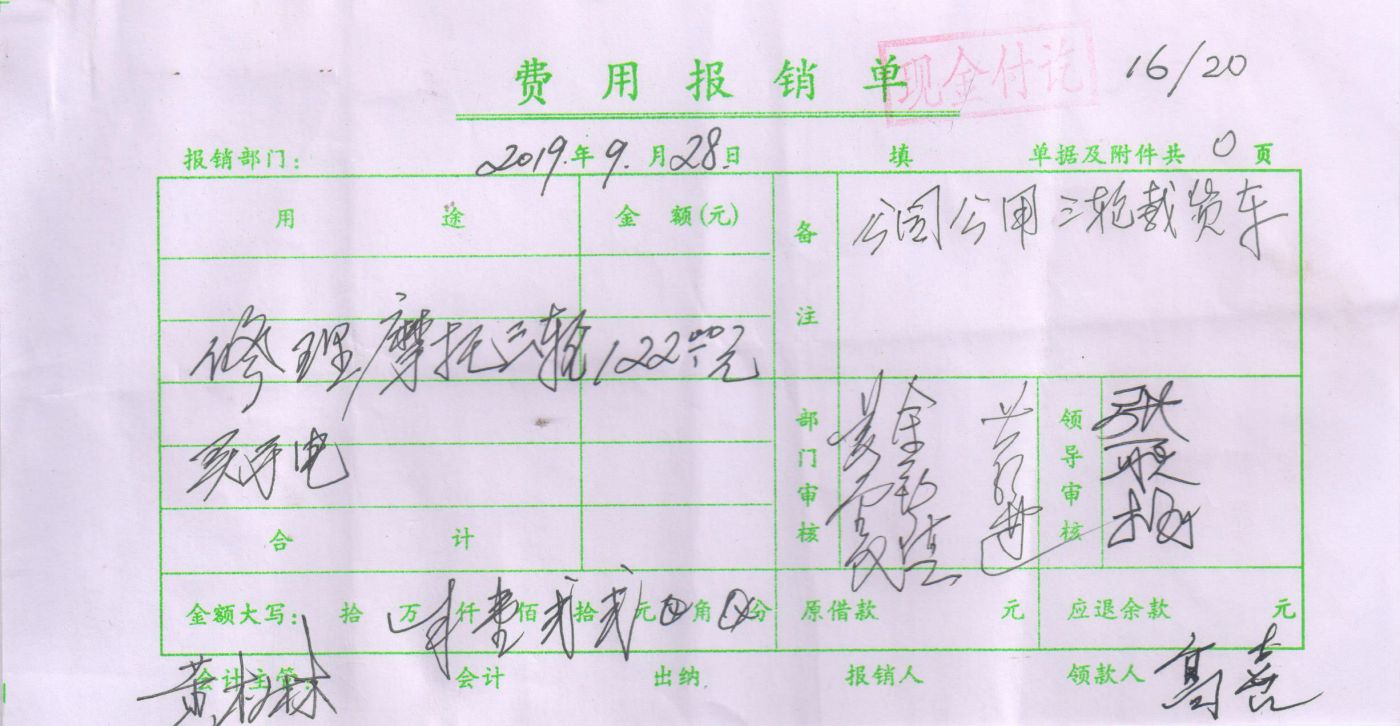 费用报销单 现金付讫 16/20
报销部门： 2019.年9.月28.日 填 单据及附件共 0 页
用途 金额(元) 备注 公司公用三轮载货车
修理摩托三轮 122.00元
买手电
部门审核 领导审核
合计
金额大写： 拾 万 仟壹佰贰拾贰元 角 分 原借款 元 应退余款 元
会计主管： 会计 出纳 报销人 领款人 高喜
黄树林